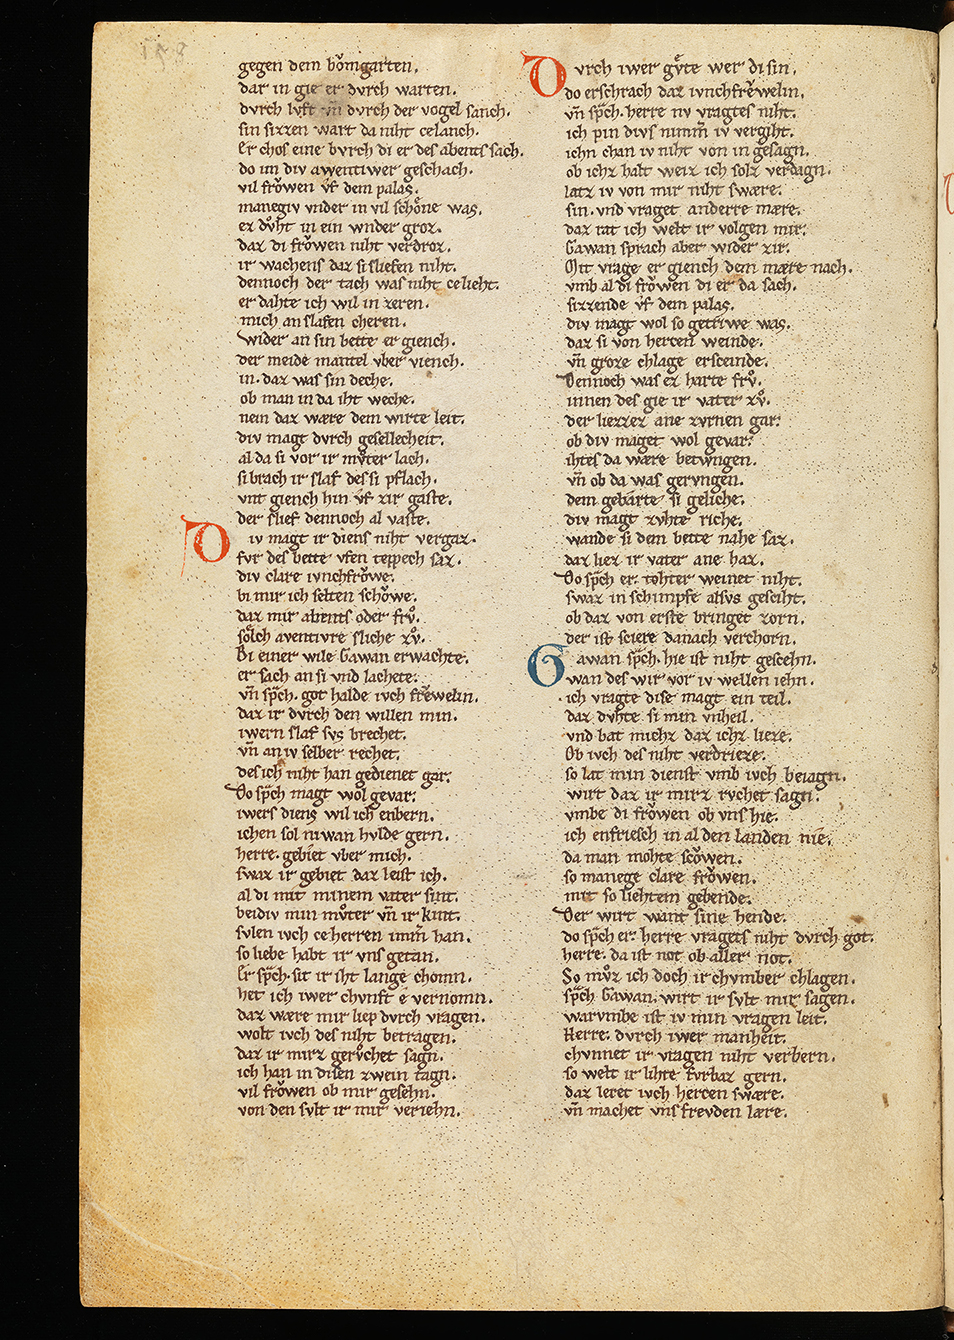 gegen dem bômgarten.
dar in gie er dvrch warten.
dvrch lvft vn̄ dvrch der vogel sanch.
sin sizzen wart da niht ce lanch.
Er chos eine bvrch di er des abents sach.
do im div awentiwer geschach.
vil frôwen vf dem palas.
manegiv vnder in vil schône was.
ez dvht in ein wnder groz.
daz di frôwen niht verdroz.
ir wachens daz si sliefen niht.
dennoch der tach was niht ce lieht.
er dahte ich wil in zeren.
mich an slafen cheren.
Wider an sin bette er giench.
der meide mantel vber viench.
in. daz was sin deche.
ob man in da iht weche.
nein daz wære dem wirte leit.
div magt dvrch gesellecheit.
al da si vor ir mvter lach.
si brach ir slaf des si pflach.
vnt giench hin vf zir gaste.
der slief dennoch al vaste.
Div magt ir diens niht vergaz.
fvr des bette vfen teppech saz.
div clare ivnchfrôwe.
bi mir ich selten schôwe.
daz mir abents oder frvͦ.
sôlch aventivre sliche zvͦ.
Bi einer wile Gawan erwachte.
er sach an si vnd lachete.
vn̄ sp̄ch. got halde ivch frêwelin.
daz ir dvrch den willen min.
iwern slaf svs brechet.
vn̄ an iv selber rechet.
des ich niht han gedienet gar.
Do sp̄ch magt wol gevar.
iwers diens wil ich enbern.
ichen sol niwan hvlde gern.
herre. gebiet vber mich.
swaz ir gebiet daz leist ich.
al di mit minem vater sint.
beidiv min mvͦter vn̄ ir kint.
svlen ivch ce herren imm̄ han.
so liebe habt ir vns getan.
Er sp̄ch. sit ir iht lange chomn.
het ich iwer chvnft e vernomn.
daz wære mir liep dvrch vragen.
wolt ivch des niht betragen.
daz ir mirz gervͦchet sagn.
ich han in disen zwein tagn.
vil frôwen ob mir gesehn.
von den svlt ir mir veriehn.
Dvrch iwer gv̂te wer di sin.
do erschrach daz ivnchfrêwelin.
vn̄ sp̄ch. herre nv vragtes niht.
ich pin divs nimm̄ iv vergiht.
ichn chan iv niht von in gesagn.
ob ichz halt weiz ich solz verdagn.
latz iv von mir niht swære.
sin. vnd vraget anderre mære.
daz rat ich welt ir volgen mir.
Gawan sprach aber wider zir.
Mit vrage er giench dem mære nach.
vmb al di frôwen di er da sach.
sizzende vf dem palas.
div magt wol so getriwe was.
daz si von hercen weinde.
vn̄ groze chlage ersceinde.
Dennoch was ez harte frvͦ.
innen des gie ir vater zvͦ.
der liezzez ane zvrnen gar.
ob div maget wol gevar.
ihtes da wære betwngen.
vn̄ ob da was gervngen.
dem gebarte si geliche.
div magt zvhte riche.
wande si dem bette nahe saz.
daz liez ir vater ane haz.
Do sp̄ch er. tohter weinet niht.
swaz in schimpfe alsvs gesciht.
ob daz von erste bringet zorn.
der ist sciere danach verchorn.
Gawan sp̄ch. hie ist niht gescehn.
wan des wir vor iv wellen iehn.
ich vragte dise magt ein teil.
daz dvhte si min vnheil.
vnd bat michz daz ichz lieze.
Ob ivch des niht verdrieze.
so lat min dienst vmb ivch beiagn.
wirt daz ir mirz rvchet sagn.
vmbe di frôwen ob vns hie.
ich enfriesch in al den landen nie.
da man mohte scôwen.
so manege clare frôwen.
mit so liehtem gebende.
Der wirt want sine hende.
do sp̄ch er. herre vragets niht dvrch got.
herre. da ist not ob aller not.
So mvͦz ich doch ir chvmber chlagen.
sp̄ch Gawan. wirt ir svlt mir sagen.
warvmbe ist iv min vragen leit.
Herre. dvrch iwer manheit.
chvnnet ir vragen niht verbern.
so welt ir lihte fvrbaz gern.
daz leret ivch hercen swære.
vn̄ machet vns frevden lære.